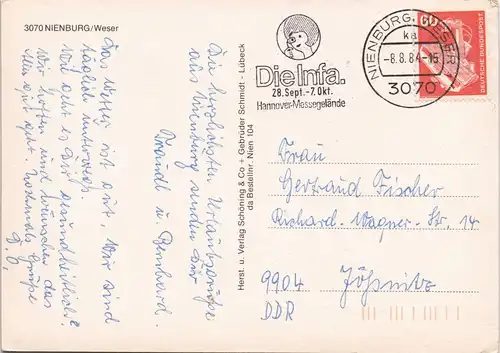 3070 NIENBURG/Weser
Das Wetter ist gut. Wir sind
täglich unterwegs.
Wie geht es Dir gesundheitlich?
Wir hoffen und wünschen das
es Dir gut geht. Nochmals Grüße
D. O.
Die herzlichsten Urlaubsgrüße
aus Nienburg senden Dir
Traudl u. Bernhard.
Herst. u. Verlag Schöning & Co + Gebrüder Schmidt - Lübeck
da Bestellnr. Nien 104
Die Infa.
28. Sept.-7. Okt.
Hannover-Messegelände
NIENBURG, WESER
ka
-8.8.84-16
3070
60
DEUTSCHE BUNDESPOST
Frau
Gertraud Fischer
Richard-Wagner-Str. 14
9904 Jößnitz
DDR